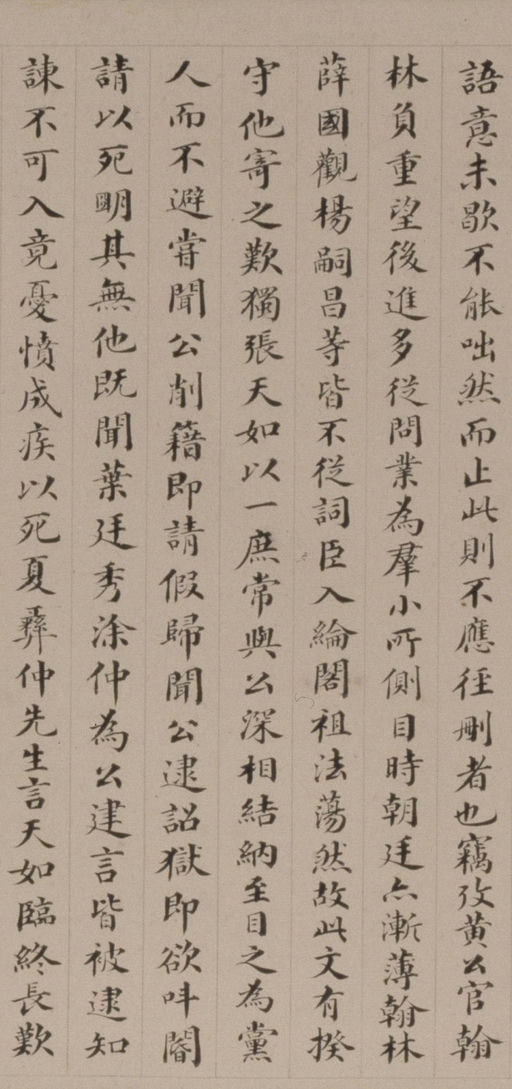 語意未歇不能咄然而止此則不應徑刪者也竊攷黃公官翰
林負重望後進多從問業為羣小所側目時朝廷亦漸薄翰林
薛國觀楊嗣昌等皆不從詞臣入綸閣祖法蕩然故此文有揆
守他寄之歎獨張天如以一庶常與公深相結納至目之為黨
人而不避嘗聞公削籍即請假歸聞公逮詔獄即欲呌閽
請以死明其無他既聞葉廷秀涂仲為公建言皆被逮知
諫不可入竟憂憤成疾以死夏彝仲先生言天如臨終長歎